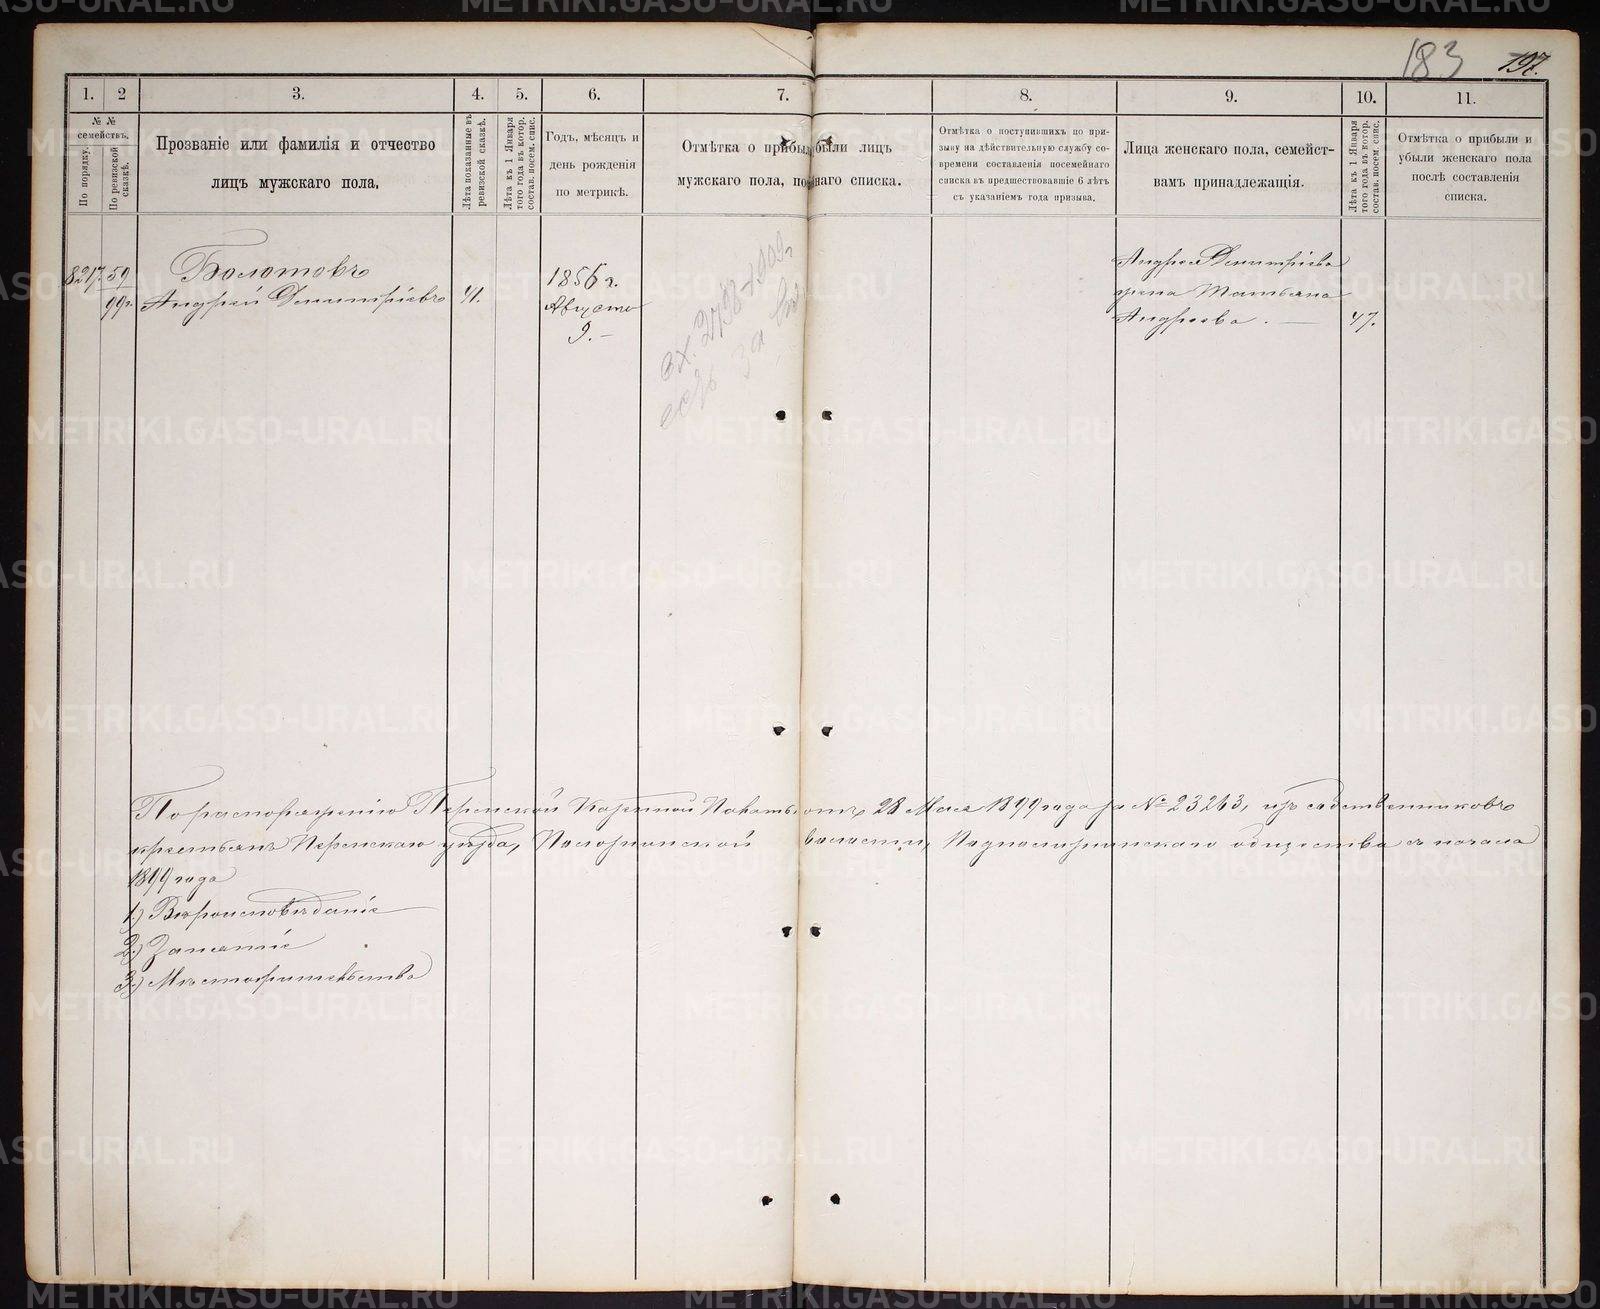 183 197.
1. 2 3. 4. 5. 6. 7. 8. 9. 10. 11.
№ №
семействъ.
По порядку.
По ревизской
сказкѣ.
Прозваніе или фамилія и отчество
лицъ мужскаго пола.
Лѣта показанные въ
ревизской сказкѣ.
Лѣта къ 1 Января
того года въ котор.
состав. посем. спис.
Годъ, мѣсяцъ и
день рожденія
по метрикѣ.
Отмѣтка о прибыли лицъ
мужскаго пола, наго списка.
Отмѣтка о поступившихъ по при-
зыву на дѣйствительную службу со-
времени составленія посемейнаго
списка въ предшествовавшіе 6 лѣтъ
съ указаніемъ года призыва.
Лица женскаго пола, семейст-
вамъ принадлежащія.
Лѣта къ 1 Января
того года въ котор.
состав. посем. спис.
Отмѣтка о прибыли и
убыли женскаго пола
послѣ составленія
списка.
8217. 59
99 г.
Болотовъ
Андрей Дмитріевъ 41.
1856 г.
Августа
9. –
вх. 2738–1909 г
есть за
Андрея Дмитріева
жена Татьяна
Андреева. — 47.
По распоряженію Пермской Казенной Палаты отъ 28 Мая 1899 года за № 23243, изъ собственниковъ
крестьянъ Пермскаго уѣзда, волости, общества съ начала
1899 года
1) Вѣроисповѣданіе
2) Занятіе
3) Мѣстожительство
METRIKI.GASO-URAL.RU